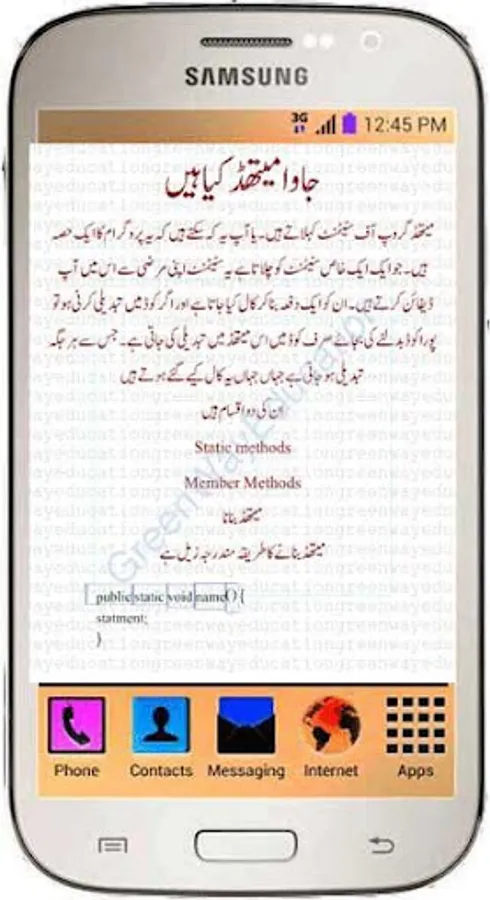 SAMSUNG
3G 12:45 PM
جاوا میتھڈ کیا ہیں
میتھڈ گروپ آف سٹیٹمنٹ کہلاتے ہیں۔ یا آپ یہ کہ سکتے ہیں کہ یہ پروگرام کا ایک حصہ
ہیں۔ جو ایک ایک خاص سٹیٹمنٹ کو چلاتا ہے یہ سٹیٹمنٹ اپنی مرضی سے اس میں آپ
ڈیفائن کرتے ہیں۔ ان کو ایک دفعہ بنا کر کال کیا جاتا ہے اور اگر کوڈ میں تبدیلی کرنی ہو تو
پورا کوڈ بدلنے کی بجائے صرف کوڈ میں اس میتھڈ میں تبدیلی کی جاتی ہے۔ جس سے ہر جگہ
تبدیلی ہو جاتی ہے جہاں جہاں یہ کال کیے گئے ہوتے ہیں
ان کی دو اقسام ہیں
Static methods
Member Methods
میتھڈ بنانا
میتھڈ بنانے کا طریقہ مندرجہ زیل ہے
public static void name() {
statment;
}
Phone Contacts Messaging Internet Apps